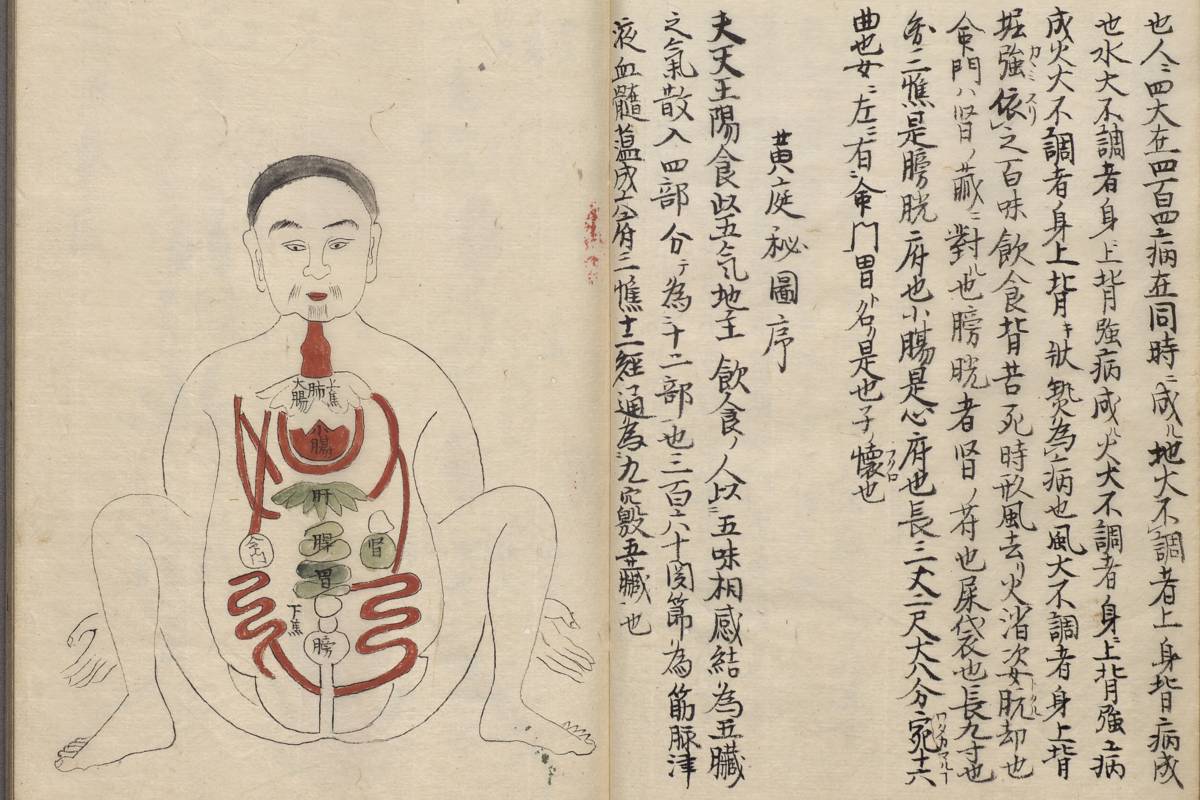 也人ミ四大在四百四病在同時ニ成ル地大不調者上身皆病成
也水大不調者身上皆強病成火大不調者身上皆強病
成火大不調者身上皆キ狀熱為病也風大不調者身上皆
強依之百味飲食皆苦死時形風去リ火消次女肮却也
カミスリ
命門ハ腎ノ藏ニ對ル也膀胱者腎ノ苻也屎袋也長九寸也
二憔是膀胱府也小腸是心府也長三丈二尺大八分六
曲也女ニ左ニ右命門胃ト名是也子ノ懐也
フクロ
黄庭秘圖序
夫天主陽食以五气地主飲食ノ人以五味相感結為五臓
之氣散入四部分テ為十二部也三百六十関節為筋脉津
液血髓蒀成六府三憔十二経通為九穴敷五臓也
大腸
肺
上焦
小腸
肝
脾
胃
腎
命門
下焦
膀